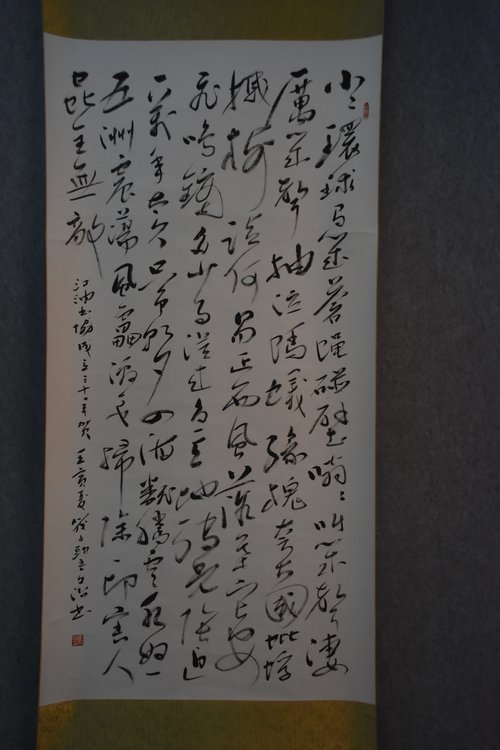 小小環球有幾蒼蠅碰壁嗡嗡叫幾聲凄
厲幾聲抽泣螞蟻緣槐夸大國蚍蜉
撼樹談何易正西風落葉下長安
飛鳴鏑多少事從來急天地轉光陰迫
一萬年太久只爭朝夕四海翻騰雲水怒
五洲震蕩風雷激要掃除一切害人
蟲全無敵
江油書協成立三十年賀 夏 書